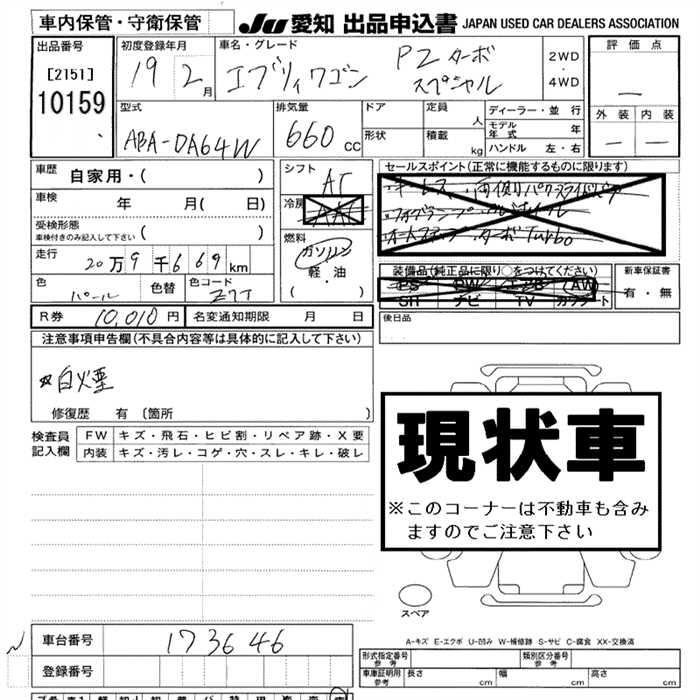 車内保管・守衛保管
JU 愛知 出品申込書 JAPAN USED CAR DEALERS ASSOCIATION
出品番号
[2151]
10159
初度登録年月
19 2 月
車名・グレード
エブリイワゴン PZターボ
スペシャル
2WD
・
4WD
評価点
―
外装 内装
― ―
型式
ABA-DA64W
排気量
660 CC
ドア
形状
定員 人
積載 kg
ディーラー・並行
モデル年式 年
ハンドル 左・右
車歴
自家用・( )
車検 年 月( 日)
受検形態
車検付きのみ記入して下さい ( )
走行 20万9千669km
色 パール 色替 色コード Z7T
シフト AT
冷房 AAC
燃料
ガソリン
軽・油
( )
セールスポイント(正常に機能するものに限ります)
・キーレス ・両側パワースライドドア
・フォグランプ
・ターボ Turbo
装備品(純正品に限り○をつけてください)
PS PW エアB AW
SR ナビ TV カワシート
新車保証書
有・無
R券 10,010円 名変通知期限 月 日
後日品
注意事項申告欄(不具合内容等は具体的に記入して下さい)
白煙
修復歴 有 〔箇所 〕
検査員
記入欄
FW キズ・飛石・ヒビ割・リペア跡・X要
内装 キズ・汚レ・コゲ・穴・スレ・キレ・破レ
現状車
※このコーナーは不動車も含み
ますのでご注意下さい
スペア
A-キズ E-エクボ U-凹み W-補修跡 S-サビ C-腐食 XX-交換済
車台番号 173646
登録番号
形式指定番号 参考
類別区分番号 参考
車庫証明用 参考 長さ cm 幅 cm 高さ cm